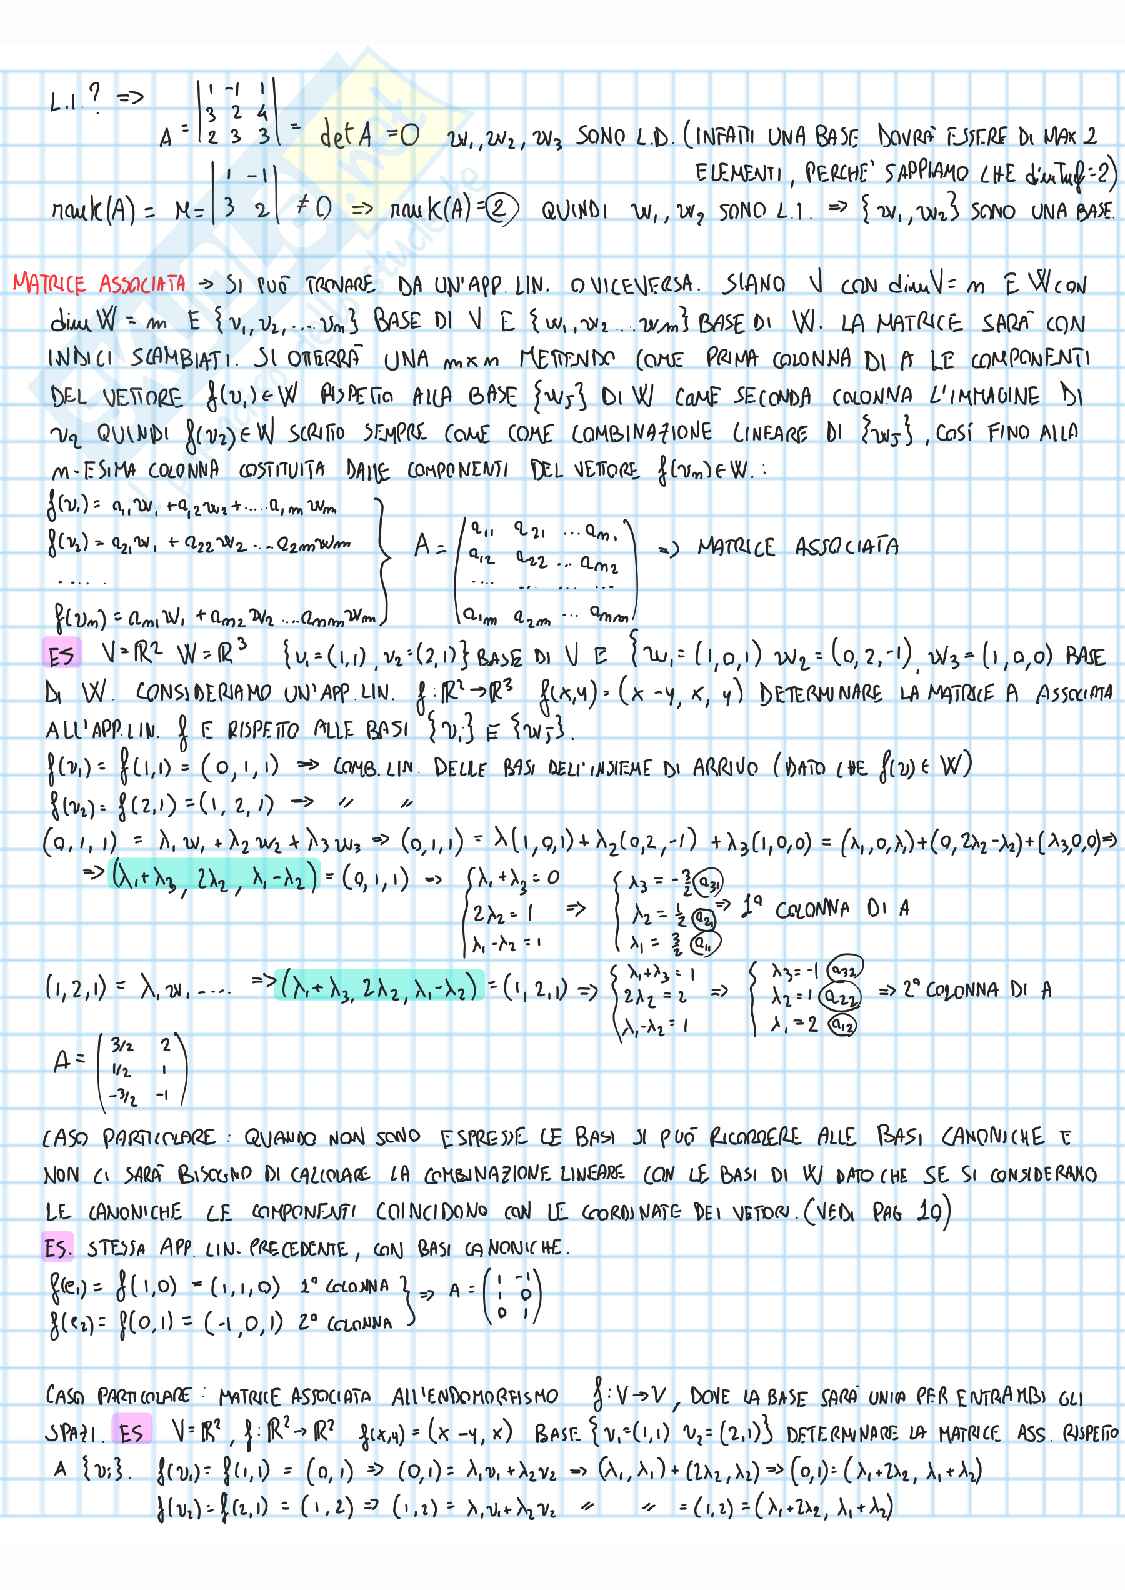 L.I ? =>
A = |1 -1 1; 3 2 4; 2 3 3| = det A = 0 w1, w2, w3 SONO L.D. (INFATTI UNA BASE DOVRÀ ESSERE DI MAX 2
ELEMENTI, PERCHE' SAPPIAMO CHE dimImf=2)
rank(A) = M = |1 -1; 3 2| ≠ 0 => rank(A) = 2 QUINDI w1, w2 SONO L.I. => {w1, w2} SONO UNA BASE.
MATRICE ASSOCIATA → SI PUÒ TROVARE DA UN'APP. LIN. O VICEVERSA. SIANO V CON dimV = n E W CON
dim W = m E {v1, v2, ... vn} BASE DI V E {w1, w2 ... wm} BASE DI W. LA MATRICE SARÀ CON
INDICI SCAMBIATI. SI OTTERRÀ UNA m×n METTENDO COME PRIMA COLONNA DI A LE COMPONENTI
DEL VETTORE f(v1) ∈ W RISPETTO ALLA BASE {wj} DI W COME SECONDA COLONNA L'IMMAGINE DI
v2 QUINDI f(v2) ∈ W SCRITTO SEMPRE COME COME COMBINAZIONE LINEARE DI {wj}, COSÌ FINO ALLA
n-ESIMA COLONNA COSTITUITA DALLE COMPONENTI DEL VETTORE f(vn) ∈ W. :
f(v1) = a11 w1 + a12 w2 + .... a1m wm
f(v2) = a21 w1 + a22 w2 ... a2m wm
.....
f(vn) = an1 w1 + an2 w2 .... anm wm
A = (a11 a21 ... an1; a12 a22 ... an2; .... .... ... ...; a1m a2m ... anm) => MATRICE ASSOCIATA
ES V = ℝ² W = ℝ³ {v1 = (1,1), v2 = (2,1)} BASE DI V E {w1 = (1,0,1) w2 = (0,2,-1), w3 = (1,0,0) BASE
DI W. CONSIDERIAMO UN'APP. LIN. f: ℝ² → ℝ³ f(x,y) = (x-y, x, y) DETERMINARE LA MATRICE A ASSOCIATA
ALL'APP. LIN. f E RISPETTO ALLE BASI {vi} E {wj}.
f(v1) = f(1,1) = (0,1,1) => COMB. LIN. DELLE BASI DELL'INSIEME DI ARRIVO (DATO CHE f(v) ∈ W)
f(v2) = f(2,1) = (1,2,1) => " "
(0,1,1) = λ1 w1 + λ2 w2 + λ3 w3 => (0,1,1) = λ(1,0,1) + λ2(0,2,-1) + λ3(1,0,0) = (λ1,0,λ1) + (0,2λ2-λ2) + (λ3,0,0) =>
=> (λ1+λ3, 2λ2, λ1-λ2) = (0,1,1) => {λ1+λ3 = 0; 2λ2 = 1; λ1-λ2 = 1 => {λ3 = -3/2 a31; λ2 = 1/2 a21; λ1 = 3/2 a11 => 1ª COLONNA DI A
(1,2,1) = λ1 w1 .... => (λ1+λ3, 2λ2, λ1-λ2) = (1,2,1) => {λ1+λ3 = 1; 2λ2 = 2; λ1-λ2 = 1 => {λ3 = -1 a32; λ2 = 1 a22; λ1 = 2 a12 => 2ª COLONNA DI A
A = (3/2 2; 1/2 1; -3/2 -1)
CASO PARTICOLARE: QUANDO NON SONO ESPRESSE LE BASI SI PUÒ RICORRERE ALLE BASI CANONICHE E
NON CI SARÀ BISOGNO DI CALCOLARE LA COMBINAZIONE LINEARE CON LE BASI DI W DATO CHE SE SI CONSIDERANO
LE CANONICHE LE COMPONENTI COINCIDONO CON LE COORDINATE DEI VETTORI. (VEDI PAG 19)
ES. STESSA APP. LIN. PRECEDENTE, CON BASI CANONICHE.
f(e1) = f(1,0) = (1,1,0) 1ª COLONNA
f(e2) = f(0,1) = (-1,0,1) 2ª COLONNA
=> A = (1 -1; 1 0; 0 1)
CASO PARTICOLARE: MATRICE ASSOCIATA ALL'ENDOMORFISMO f: V → V, DOVE LA BASE SARÀ UNICA PER ENTRAMBI GLI
SPAZI. ES V = ℝ², f: ℝ² → ℝ² f(x,y) = (x-y, x) BASE {v1 = (1,1) v2 = (2,1)} DETERMINARE LA MATRICE ASS. RISPETTO
A {vi}. f(v1) = f(1,1) = (0,1) => (0,1) = λ1 v1 + λ2 v2 => (λ1, λ1) + (2λ2, λ2) => (0,1) = (λ1+2λ2, λ1+λ2)
f(v2) = f(2,1) = (1,2) => (1,2) = λ1 v1 + λ2 v2 " " = (1,2) = (λ1+2λ2, λ1+λ2)